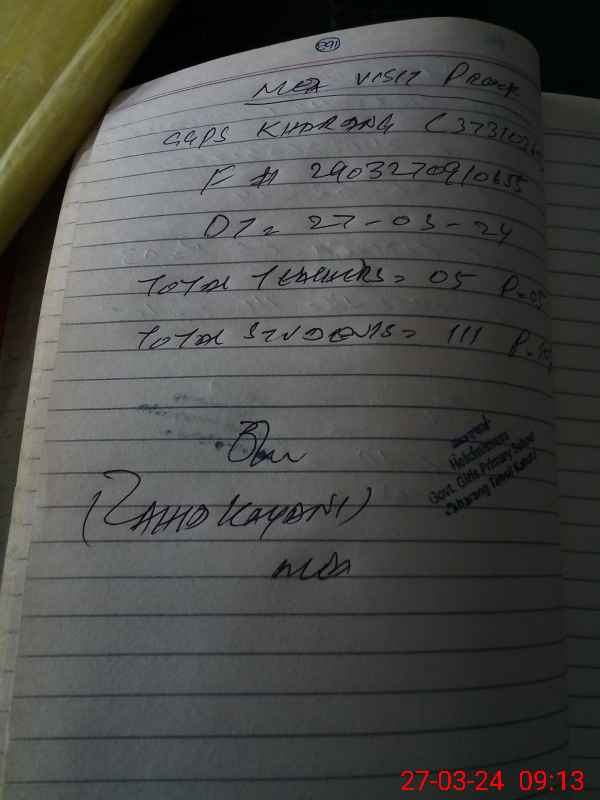 291
MEA VISIT Proof
GGPS KHARANG (373102
F # 2903270910655
DT= 27-03-24
TOTAL TEACHERS= 05 P=05
TOTAL STUDENTS= 111 P=
(ZAHID KAYANI)
MEA
Headmistress
Govt. Girls Primary School
27-03-24 09:13